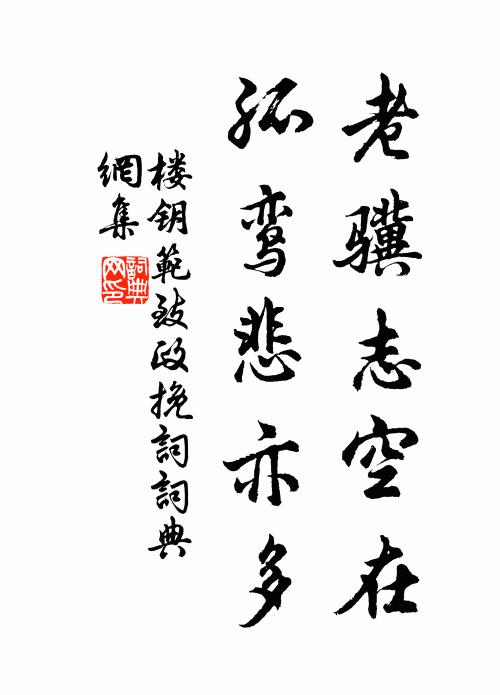 老骥志空在
孤鸾悲亦多
楼钥範致政挽詞詞典
網集
詞典網印